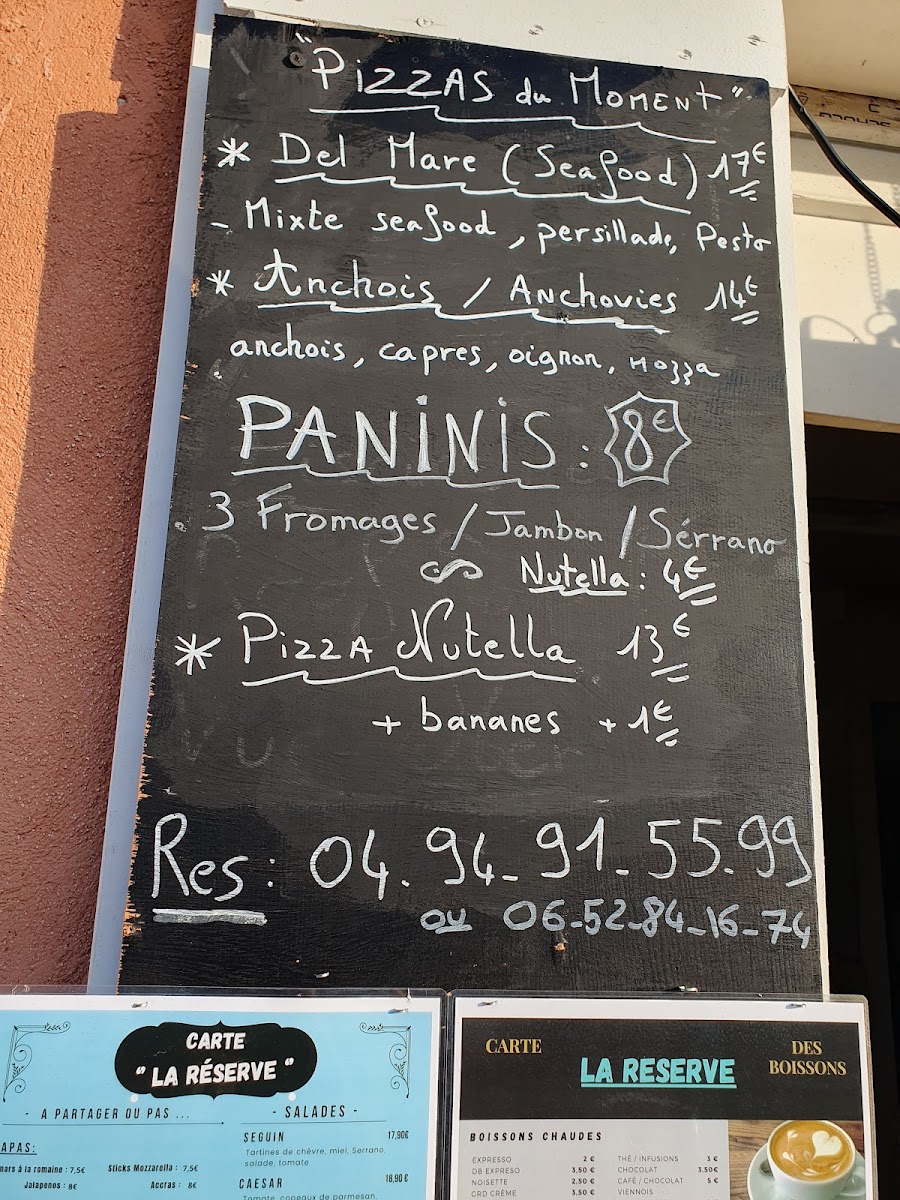 "PIZZAS du MOMENT"
* Del Mare (Seafood) 17€
- Mixte seafood, persillade, Pesto
* Anchois / ANCHOVIES 14€
anchois, capres, oignon, mozza
PANINIS : 8€
3 Fromages / Jambon / Sérrano
Nutella : 4€
* PIZZA Nutella 13€
+ bananes + 1€
Res : 04.94_91_55.99
ou 06_52_84_16_74
CARTE
" LA RÉSERVE "
- A PARTAGER OU PAS ...
APAS:
mars à la romaine : 7,5€ Sticks Mozzarella : 7,5€
Jalapenos : 8€ Accras : 8€
- SALADES -
SEGUIN 17,90€
Tartines de chèvre, miel, Serrano,
salade, tomate
CAESAR 18,90 €
Tomate, copeaux de parmesan,
CARTE
LA RESERVE
DES
BOISSONS
BOISSONS CHAUDES
EXPRESSO 2 €
DB EXPRESO 3,50 €
NOISETTE 2,50 €
GRD CRÈME 3,50 €
THÉ / INFUSIONS 3 €
CHOCOLAT 3,50€
CAFÉ / CHOCOLAT 5 €
VIENNOIS